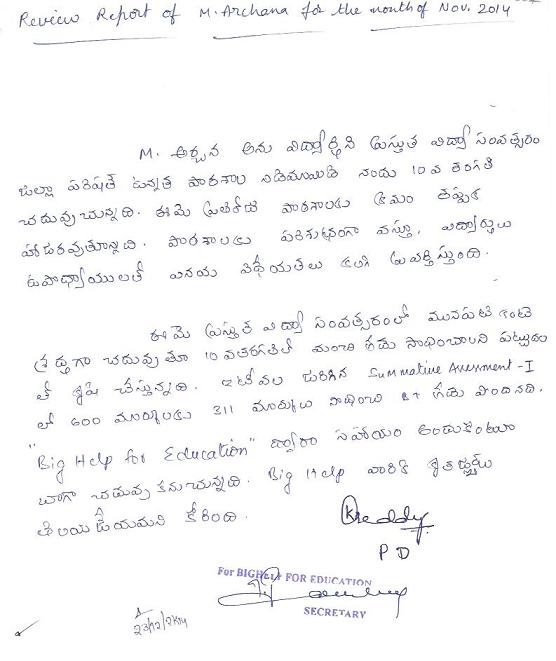 Review Report of M. Archana for the month of Nov. 2014
M. అర్చన అను విద్యార్థిని ప్రస్తుత విద్యా సంవత్సరం
జిల్లా పరిషత్ ఉన్నత పాఠశాల నడిమూడి నందు 10 వ తరగతి
చదువుచున్నది. ఈమె ప్రతిరోజు పాఠశాలకు క్రమం తప్పక
హాజరవుతున్నది. పాఠశాలకు పరిశుభ్రంగా వస్తూ, విద్యార్థులు
ఉపాధ్యాయులతో వినయ విధేయతలు కలిగి ప్రవర్తిస్తుంది.
ఈమె ప్రస్తుత విద్యా సంవత్సరంలో మునుపటి కంటె
శ్రద్ధగా చదువుతూ 10 వతరగతిలో మంచి గ్రేడు సాధించాలని పట్టుదల
తో కృషి చేస్తున్నది. ఇటీవల జరిగిన Summative Assessment-I
లో 600 మార్కులకు 311 మార్కులు సాధించి B+ గ్రేడు పొందినది.
"Big Help for Education" ద్వారా సహాయం అందుకుంటూ
బాగా చదువుకొనుచున్నది. Big Help వారికి కృతజ్ఞతలు
తెలియజేయమని కోరింది.
KReddy
PD
For BIGHELP FOR EDUCATION
SECRETARY
23/12/2K14